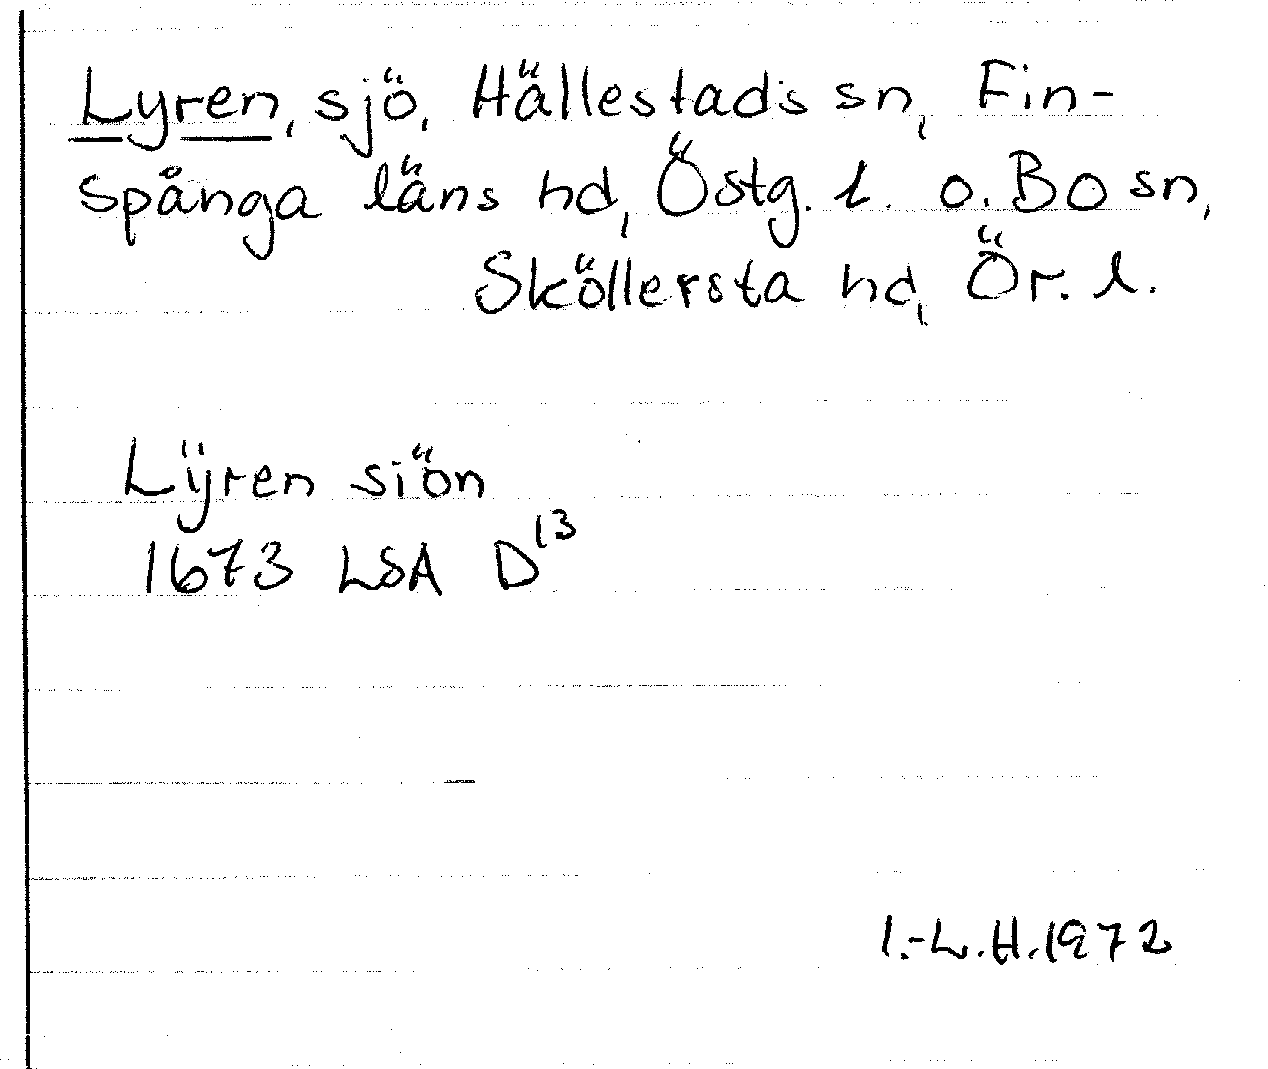 Lyren, sjö, Hällestads sn, Fin-
spånga läns hd, Östg. l. o. Bo sn,
Sköllersta hd, Ör. l.
Lÿren siön
1673 LSA D¹³
I.-L.H.1972